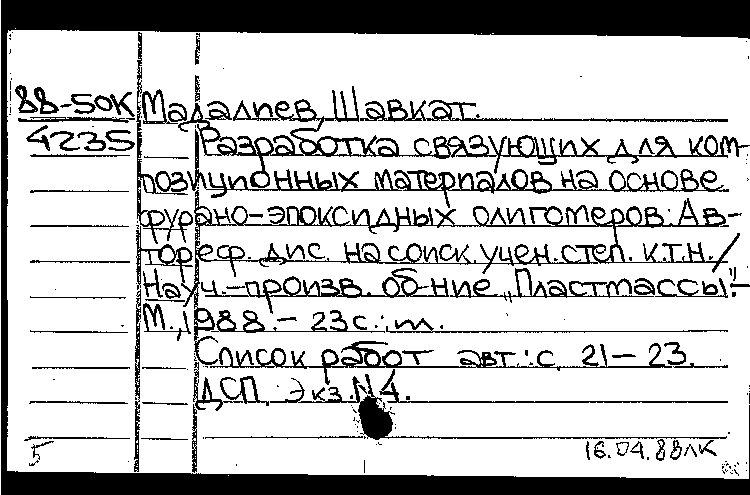 88-50К Мадалиев, Шавкат.
4235 Разработка связующих для ком-
позиционных материалов на основе
фурано-эпоксидных олигомеров: Ав-
тореф. дис. на соиск. учен. степ. к.т.н. /
Науч.-произв. об-ние „Пластмассы".-
М., 1988.- 23с.: ил.
Список работ авт.: с. 21-23.
ДСП. Экз. N4.
5 16.04.88лк